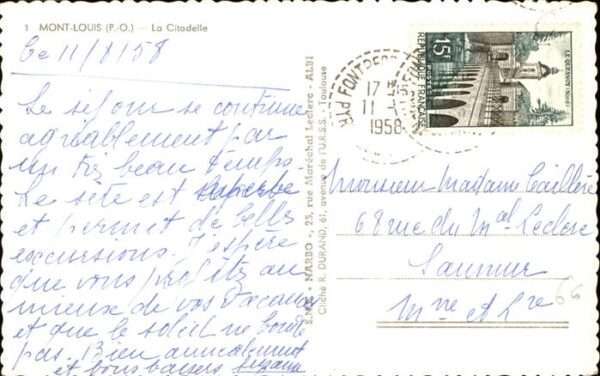 1 MONT-LOUIS (P.-O.) — La Citadelle
Ce 11/8/58
Le séjour se continue
agréablement par
un très beau temps.
Le site est superbe
et permet de belles
excursions. J'espère
que vous profitez au
mieux de vos vacances
et que le soleil ne boude
pas. Bien amicalement
et bons baisers
NARBO - 25, rue Maréchal Leclerc - ALBI
Cliché R. DURAND, 61, avenue de l'U.R.S.S. Toulouse
17
11
1958
15F
POSTES
REPUBLIQUE FRANÇAISE
LE QUESNOY (NORD)
Monsieur Madame Taillère
68 rue du Mal Leclerc
Saumur
Mne et Lre
66